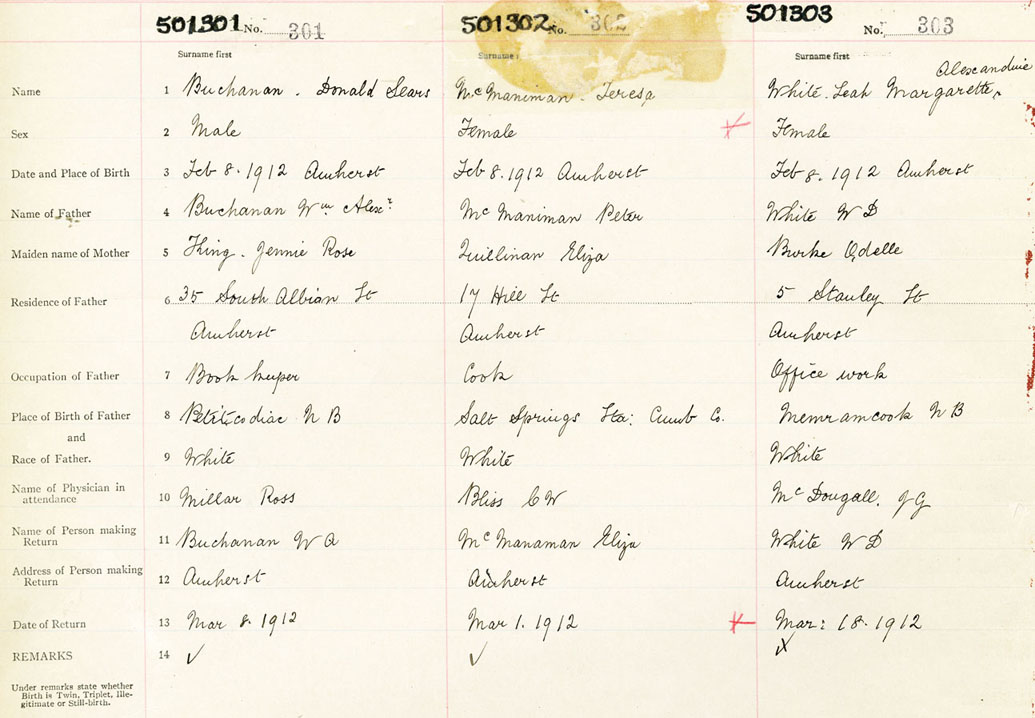 501301 No. 301 501302 No. 302 501303 No. 303
Surname first Surname first Surname first
Alexandrie
Name 1 Buchanan. Donald Sears McManiman. Teresa White. Leah Margarette
Sex 2 Male Female Female
Date and Place of Birth 3 Feb 8. 1912 Amherst Feb 8. 1912 Amherst Feb 8. 1912 Amherst
Name of Father 4 Buchanan Wm Alexr McManiman Peter White W D
Maiden name of Mother 5 King. Jennie Rose Quillinan Eliza Burke Odelle
Residence of Father 6 35 South Albian St 17 Hill St 5 Stanley St
Amherst Amherst Amherst
Occupation of Father 7 Book keeper Cook Office work
Place of Birth of Father 8 Petitcodiac N B Salt Springs Sta: Cumb Co. Memramcook N B
and
Race of Father. 9 White White White
Name of Physician in
attendance 10 Millar Ross Bliss C W McDougall. J G
Name of Person making
Return 11 Buchanan W A McManaman Eliza White W D
Address of Person making
Return 12 Amherst Amherst Amherst
Date of Return 13 Mar 8. 1912 Mar 1. 1912 Mar: 18. 1912
REMARKS 14 ✓ ✓ ✓
Under remarks state whether
Birth is Twin, Triplet, Ille-
gitimate or Still-birth.